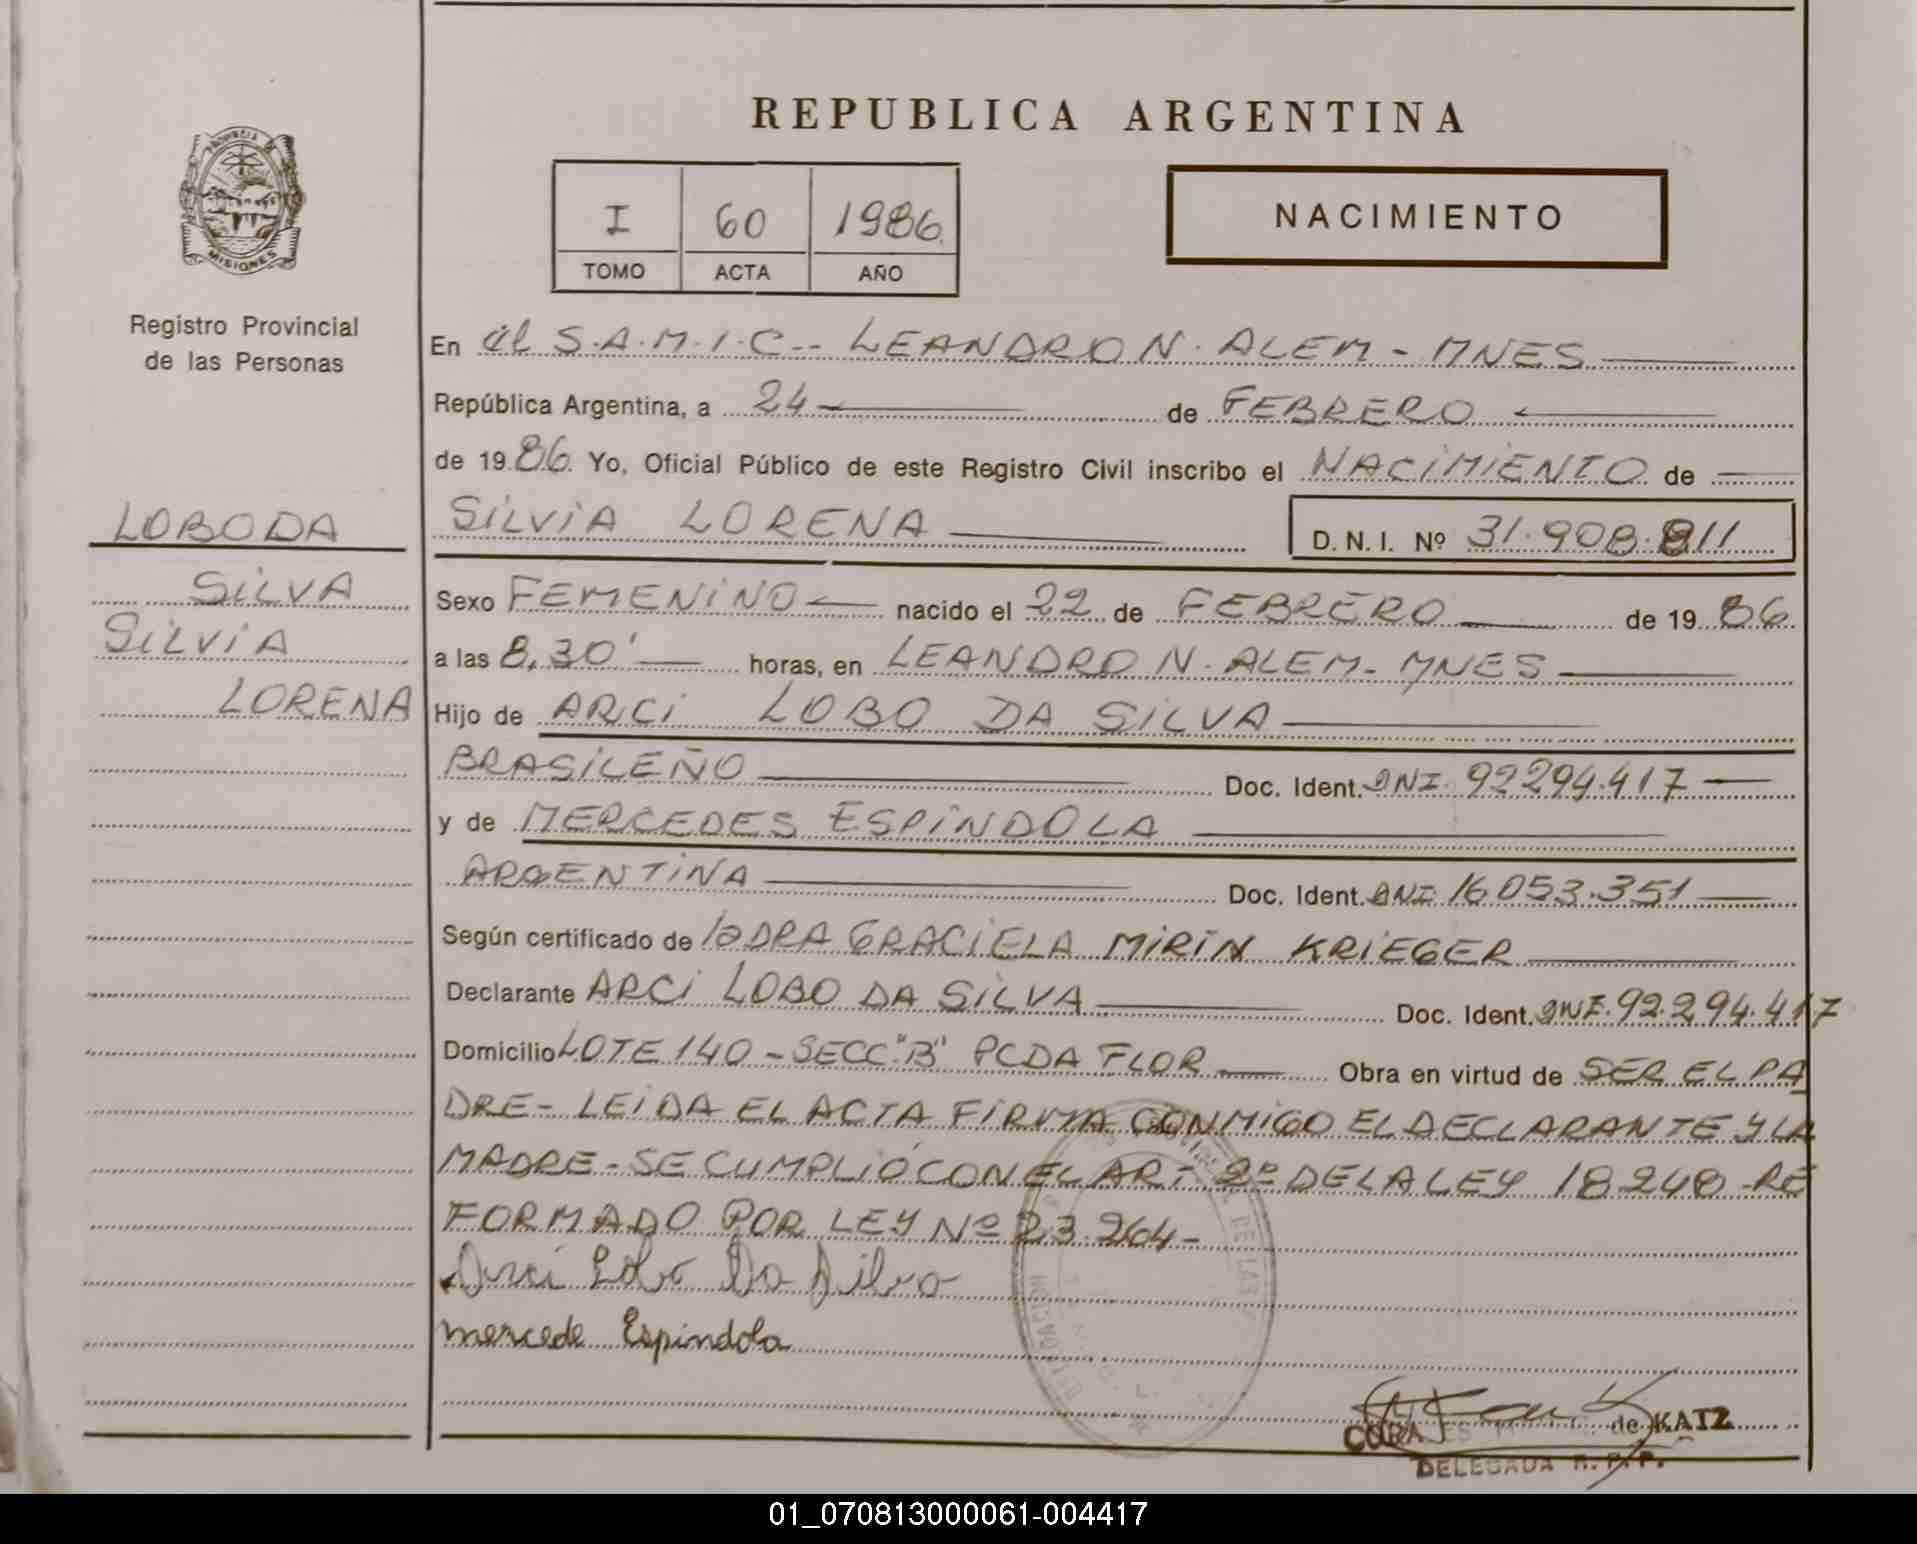 REPUBLICA ARGENTINA
PROVINCIA DE
MISIONES
Registro Provincial
de las Personas
I 60 1986
TOMO ACTA AÑO
NACIMIENTO
En el S.A.M.I.C.- LEANDRO N. ALEM - MNES
República Argentina, a 24 de FEBRERO
de 1986. Yo, Oficial Público de este Registro Civil inscribo el NACIMIENTO de
SILVIA LORENA
D. N. I. Nº 31.908.811
LOBO DA
SILVA
SILVIA
LORENA
Sexo FEMENINO nacido el 22 de FEBRERO de 1986
a las 8,30' horas, en LEANDRO N. ALEM - MNES
Hijo de ARCI LOBO DA SILVA
BRASILEÑO Doc. Ident. DNI. 92294.417
y de MERCEDES ESPINDOLA
ARGENTINA Doc. Ident. DNI 16053.351
Según certificado de la DRA GRACIELA MIRIN KRIEGER
Declarante ARCI LOBO DA SILVA Doc. Ident. DNI. 92.294.417
Domicilio LOTE 140 - SECC "B" PCDA FLOR Obra en virtud de SER EL PA
DRE - LEIDA EL ACTA FIRMA CONMIGO EL DECLARANTE Y LA
MADRE - SE CUMPLIÓ CON EL AR- 2º DE LA LEY 18.248 - RE
FORMADO POR LEY Nº 23.264 -
Arci Lobo Da Silva
mercede Espindola
DELEGACION DE LAS
CORA de KATZ
DELEGADA R. P. P.
01_070813000061-004417